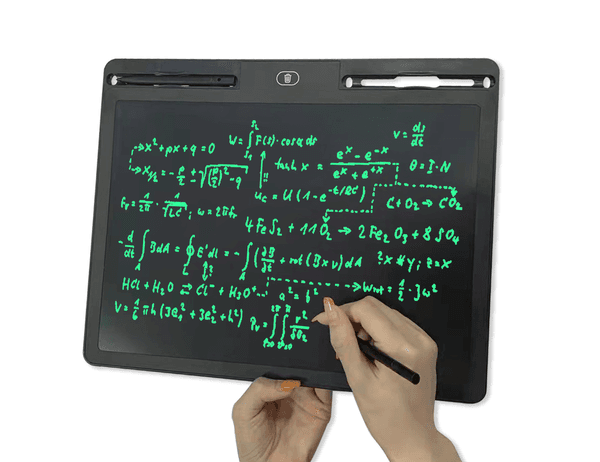 x² + px + q = 0
W = ∫ F(s) · cos α ds
s₂
s₁
v = ds/dt
x₁/₂ = - p/2 ± √((p/2)² - q)
tanh x = (eˣ - e⁻ˣ)/(eˣ + e⁺ˣ)
θ = I · N
!!
u_c = U (1 - e^(-t/RC))
C + O₂ → CO₂
Fᵣ = 1/2π · 1/√LC ; ω = 2πfᵣ
4 FeS₂ + 11 O₂ → 2 Fe₂O₃ + 8 SO₄
- d/dt ∫_A B dA = ∮ E' dl = - ∫_A (∂B/∂t + rot (B × v) dA
?x # y ; z = x
HCl + H₂O ⇌ Cl⁻ + H₃O⁺
a² = b²
W_rot = 1/2 · J ω²
V = 1/6 π h (3r₁² + 3r₂² + h²)